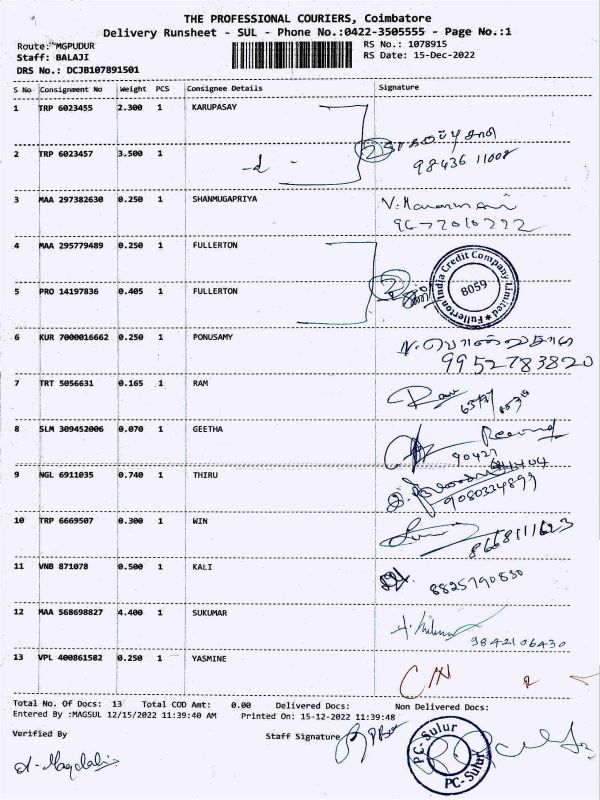 THE PROFESSIONAL COURIERS, Coimbatore
Delivery Runsheet - SUL - Phone No.:0422-3505555 - Page No.:1
Route: MGPUDUR RS No.: 1078915
Staff: BALAJI RS Date: 15-Dec-2022
DRS No.: DCJB107891501
S No Consignment No Weight PCS Consignee Details Signature
1 TRP 6023455 2.300 1 KARUPASAY
2 TRP 6023457 3.500 1 2 98436 11008
3 MAA 297382630 0.250 1 SHANMUGAPRIYA
9677010292
4 MAA 295779489 0.250 1 FULLERTON
Fullerton India Credit Company Limited * 8059
5 PRO 14197836 0.405 1 FULLERTON 2
6 KUR 7000016662 0.250 1 PONUSAMY
9952783820
7 TRT 5056631 0.165 1 RAM
8 SLM 309452006 0.070 1 GEETHA
9 NGL 6911035 0.740 1 THIRU
9080334899
10 TRP 6669507 0.300 1 WIN
8668111623
11 VNB 871078 0.500 1 KALI
8825790830
12 MAA 568698827 4.400 1 SUKUMAR
9842106430
13 VPL 400861582 0.250 1 YASMINE
Total No. Of Docs: 13 Total COD Amt: 0.00 Delivered Docs: Non Delivered Docs:
Entered By :MAGSUL 12/15/2022 11:39:40 AM Printed On: 15-12-2022 11:39:48
Verified By Staff Signature
PC-Sulur PC-Sulur